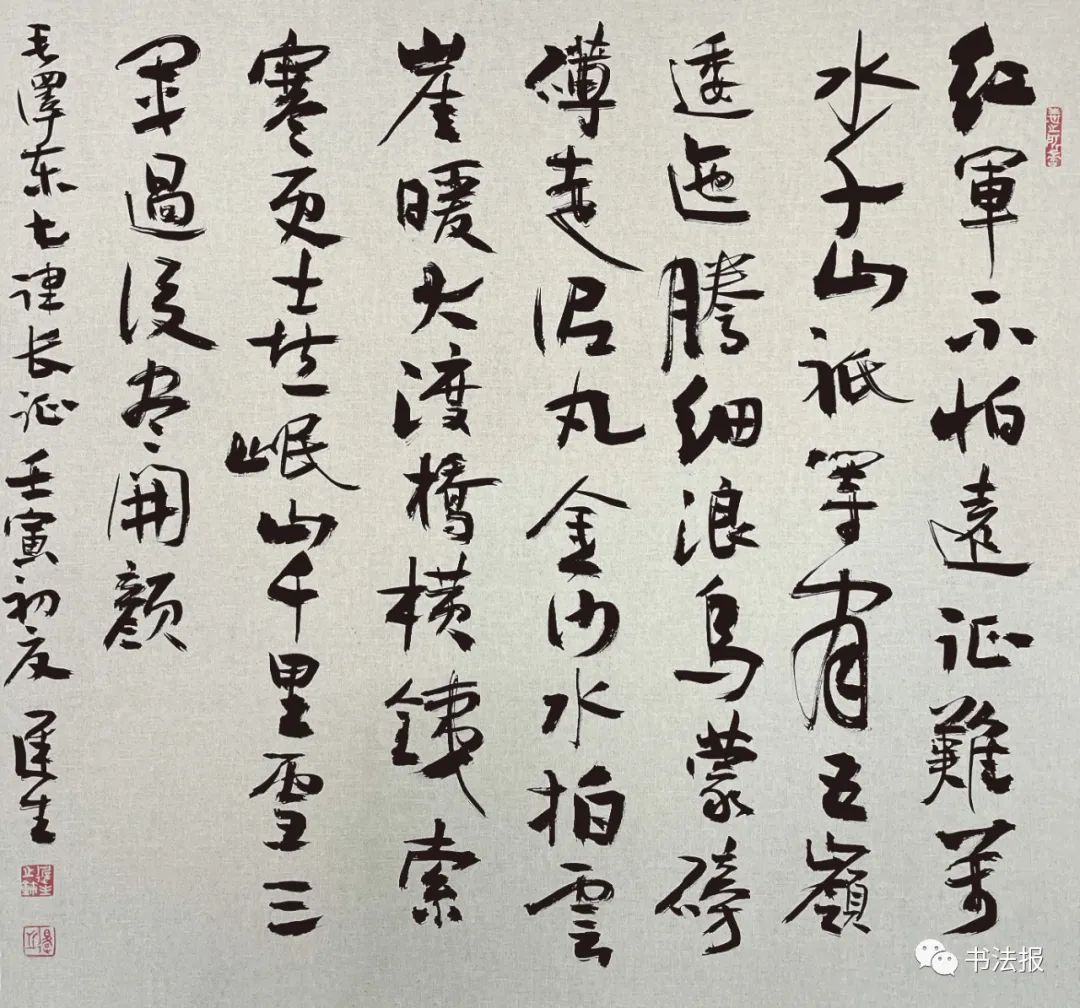 紅軍不怕遠征難萬
水千山祗等閒五嶺
逶迤騰細浪烏蒙磅
礴走泥丸金沙水拍雲
崖暖大渡橋橫鐵索
寒更喜岷山千里雪三
軍過後盡開顏
毛澤东七律长征壬寅初夏生
书法报